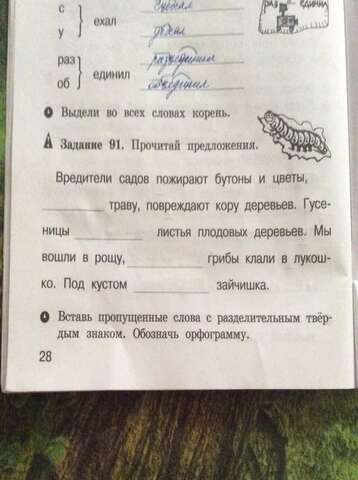 с
у } ехал
съехал
уехал
раз
об } единил
разъединил
объединил
раз единил
Выдели во всех словах корень.
Задание 91. Прочитай предложения.
Вредители садов пожирают бутоны и цветы,
траву, повреждают кору деревьев. Гусе-
ницы листья плодовых деревьев. Мы
вошли в рощу, грибы клали в лукош-
ко. Под кустом зайчишка.
Вставь пропущенные слова с разделительным твёр-
дым знаком. Обозначь орфограмму.
28